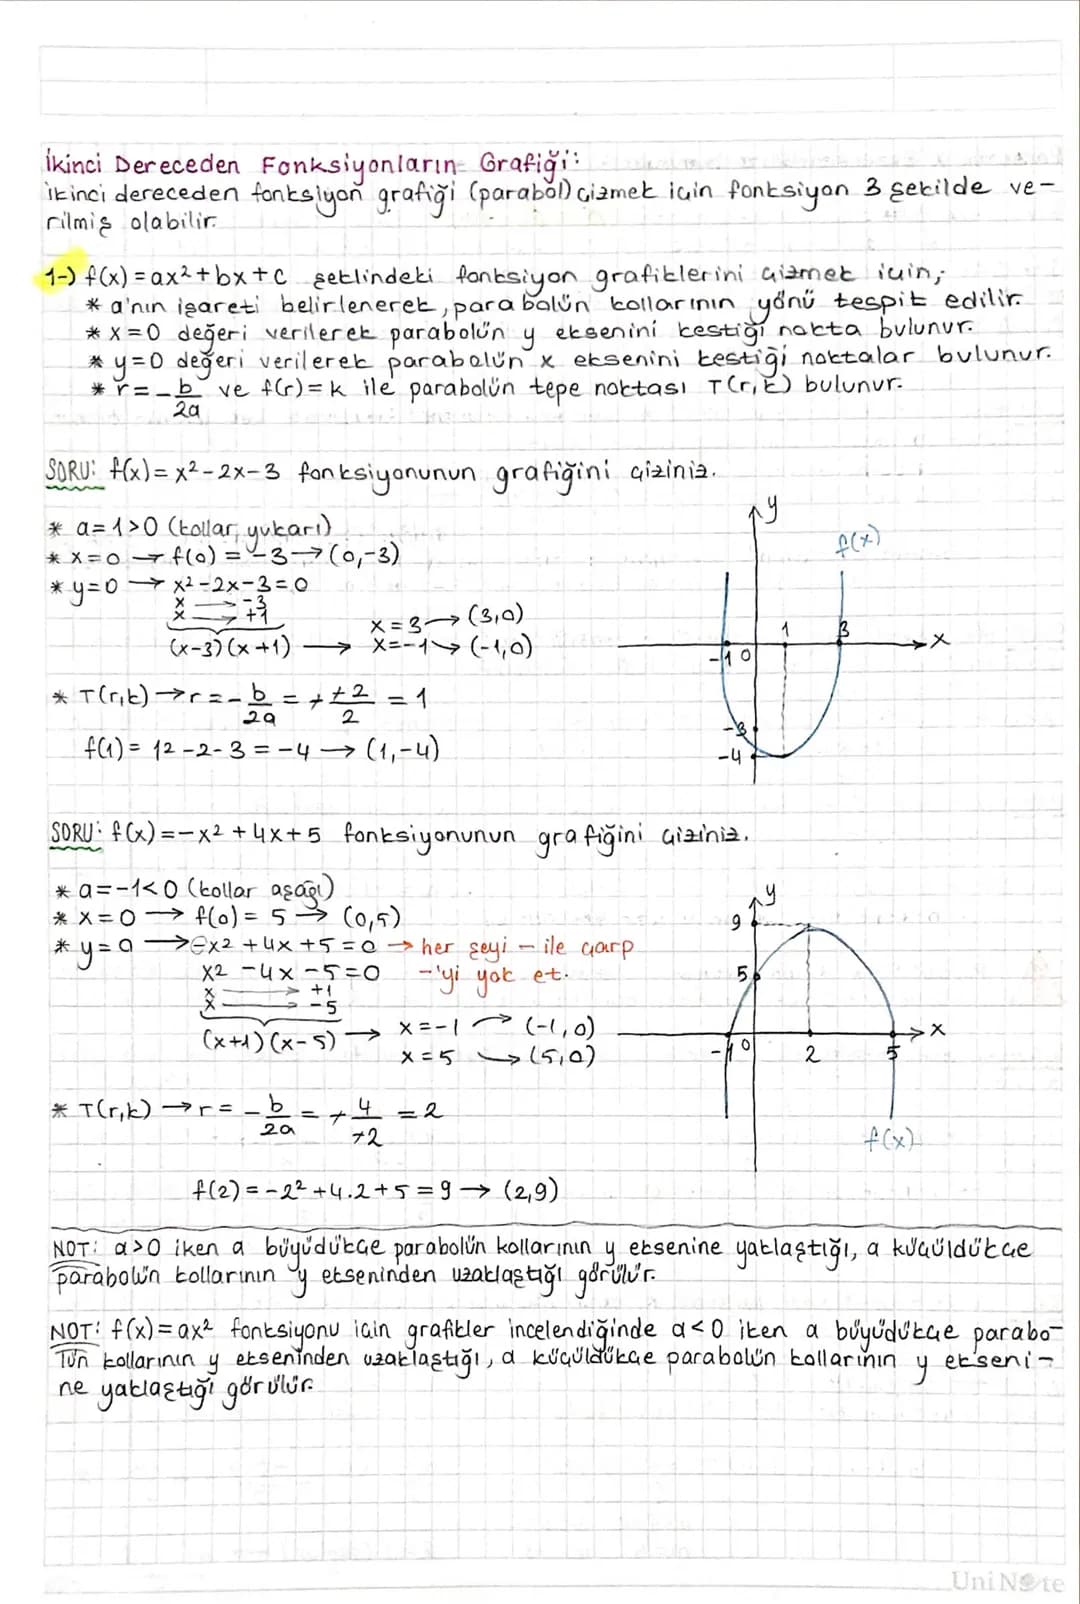 İkinci Dereceden Fonksiyonların Grafiği:
ikinci dereceden fonksiyon grafiği (parabol) çizmek için fonksiyon 3 şekilde ve-
rilmiş olabilir.
1-) f(x) = ax² + bx + c şeklindeki fonksiyon grafiklerini çizmek için;
* a'nın işareti belirlenerek, parabolün kollarının yönü tespit edilir.
* x=0 değeri verilerek parabolün y eksenini kestiği nokta bulunur.
* y=0 değeri verilerek parabolün x eksenini kestiği noktalar bulunur.
* r = -b/2a ve f(r) = k ile parabolün tepe noktası T(r,k) bulunur.
SORU: f(x) = x² - 2x - 3 fonksiyonunun grafiğini çiziniz.
* a = 1 > 0 (kollar yukarı)
* x=0 → f(0) = -3 → (0,-3)
* y=0 → x² - 2x - 3 = 0
x → -3
x → +1
(x-3)(x+1) → x=3 → (3,0)
x=-1 → (-1,0)
* T(r,k) → r = -b/2a = + +2/2 = 1
f(1) = 1² - 2 - 3 = -4 → (1,-4)
y
f(x)
-1 0 1 3 x
-3
-4
SORU: f(x) = -x² + 4x + 5 fonksiyonunun grafiğini çiziniz.
* a = -1 < 0 (kollar aşağı)
* x=0 → f(0) = 5 → (0,5)
* y=0 → -x² + 4x + 5 = 0 → her şeyi - ile çarp
x² - 4x - 5 = 0 -'yi yok et.
x → +1
x → -5
(x+1)(x-5) → x=-1 → (-1,0)
x=5 → (5,0)
* T(r,k) → r = -b/2a = + 4/+2 = 2
f(2) = -2² + 4.2 + 5 = 9 → (2,9)
y
9
5
-1 0 2 5 x
f(x)
NOT: a>0 iken a büyüdükçe parabolün kollarının y eksenine yaklaştığı, a küçüldükçe
parabolün kollarının y ekseninden uzaklaştığı görülür.
NOT: f(x) = ax² fonksiyonu için grafikler incelendiğinde a<0 iken a büyüdükçe parabo-
lün kollarının y ekseninden uzaklaştığı, a küçüldükçe parabolün kollarının y ekseni-
ne yaklaştığı görülür.
UniNote